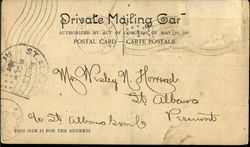 Private Mailing Car
AUTHORIZED BY ACT OF CONGRESS OF MAY 19,
POSTAL CARD – CARTE POSTALE
ST A
Mr. Wesley N. Howard
St Albans
c/o St Albans Vermont
THIS SIDE IS FOR THE ADDRESS